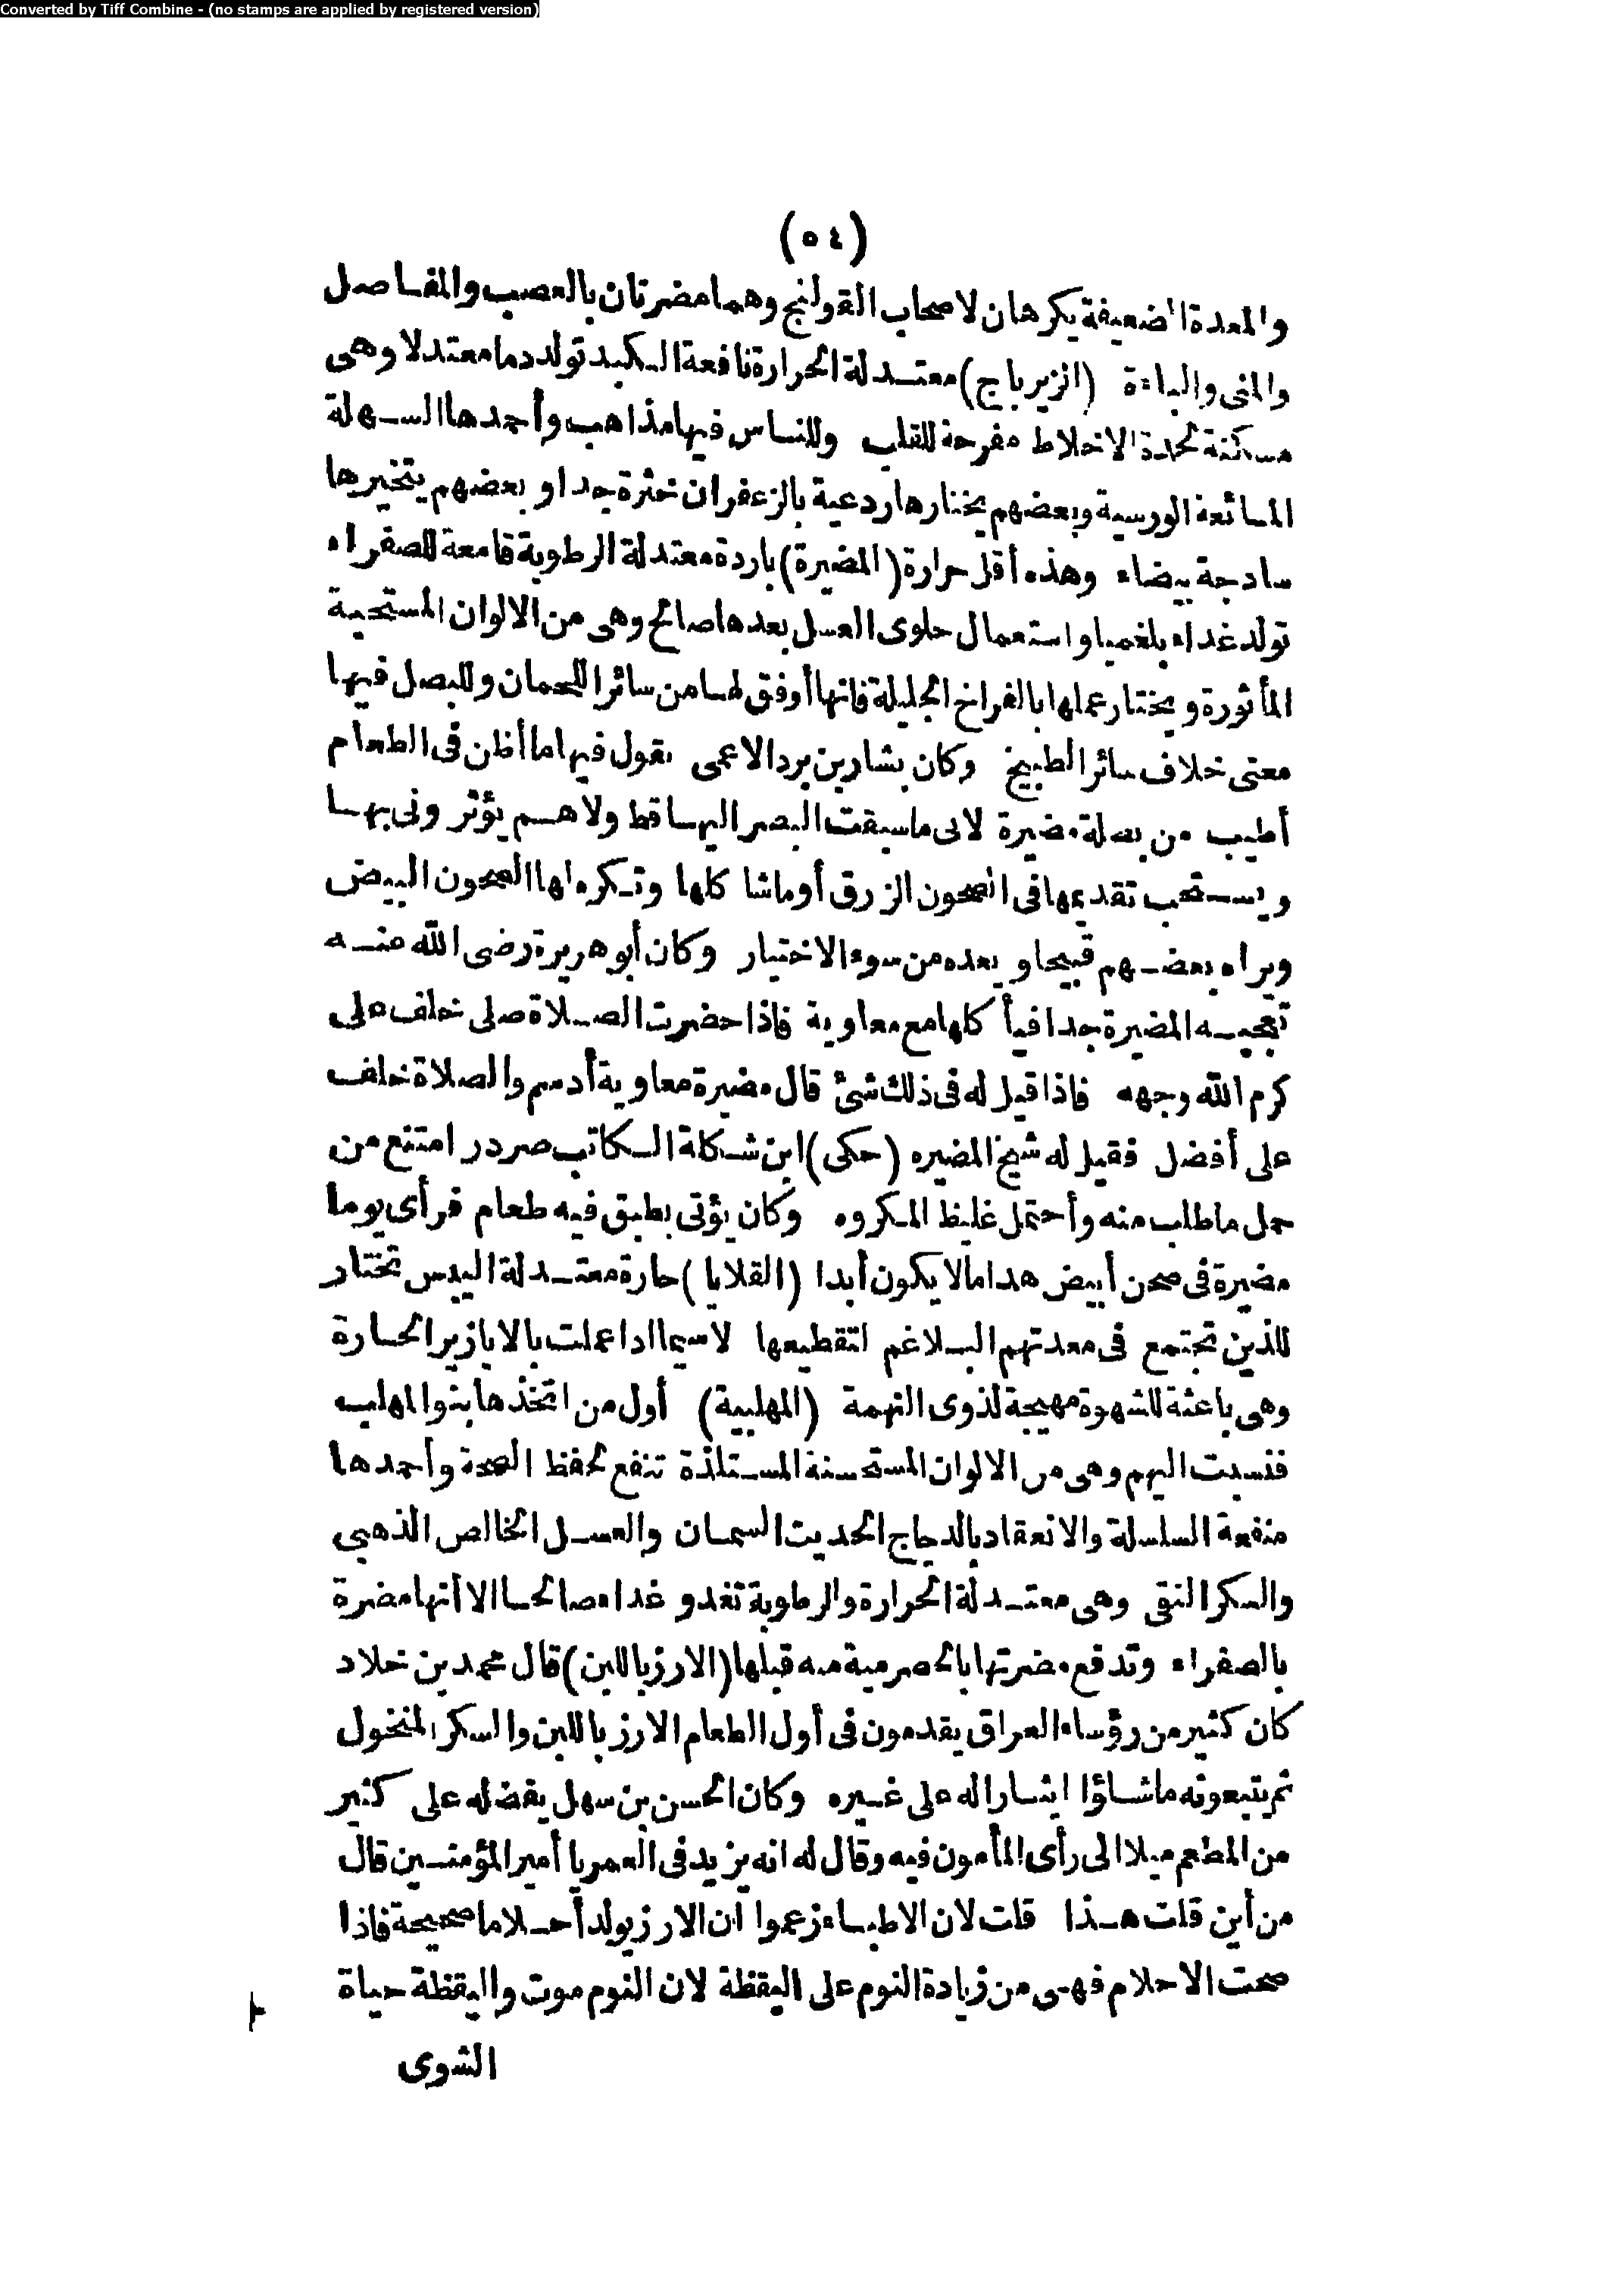 Converted by Tiff Combine - (no stamps are applied by registered version)
(٥٤)
والمعدة الضعيفة يكرهان لاصحاب القولنج وهما مضرتان بالعصب والمفاصل
والمنى والباءة (الزيرباج) معتدلة الحرارة نافعة الكبد تولد دما معتدلا وهى
مسكنة لحدة الاخلاط مفرحة للقلب وللناس فيها مذاهب وأحمدها السهلة
المائعة الورسية وبعضهم يختارها ردعية بالزعفران خثرة جدا وبعضهم يتخيرها
سادجة بيضاء وهذه أقل حرارة (المضيرة) باردة معتدلة الرطوبة قامعة للصفراء
تولد غداء بلغميا واستعمال حلوى العسل بعدها صالح وهى من الالوان المستحبة
المأثورة ويختار عملها بالفراخ الجليلة فانها أوفق لها من سائر اللحمان وللبصل فيها
معنى خلاف سائر الطبيخ وكان بشار بن برد الاعمى يقول فيها ما أظن فى الطعام
أطيب من بصلة مضيرة لانى ما سبقت البصر اليها قط ولاهم يؤثرونى بها
ويستحب تقديمها فى الصحون الزرق أو ماشا كلها وتكره لها الصحون البيض
ويراه بعضهم قبيحا ويعده من سوء الاختيار وكان أبو هريرة رضى الله عنه
تعجبه المضيرة جدا فيأ كلها مع معاوية فاذا حضرت الصلاة صلى خلف على
كرم الله وجهه فاذا قيل له فى ذلك شئ قال مضيرة معاوية أدسم والصلاة خلف
على أفضل فقيل له شيخ المضيره (حكى) ابن شكلة الكاتب صردر امتنع من
حمل ما طلب منه وأحتمل غليظ المكروه وكان يؤتى بطبق فيه طعام فرأى يوما
مضيرة فى صحن أبيض هدا مالا يكون أبدا (القلايا) حارة معتدلة اليبس تختار
للذين تجتمع فى معدتهم البلاغم لتقطيعها لاسيما اداعملت بالابازير الحارة
وهى باعثة للشهوة مهيجة لذوى النهمة (المهلبية) أول من اتخذها بنو المهلب
فنسبت اليهم وهى من الالوان المستحسنة المستلذة تنفع لحفظ الصحة وأحمدها
منفعة السلسلة والانعقاد بالدجاج الحديت السمان والعسل الخالص الذهبى
والسكر النقى وهى معتدلة الحرارة والرطوبة تغدو غداء صالحا الا أنها مضرة
بالصفراء وتدفع مضرتها بالحصرمية منه قبلها (الارز باللبن) قال محمد بن خلاد
كان كثير من رؤساء العراق يقدمون فى أول الطعام الارز باللبن والسكر المنخول
ثم يتبعونه ما شاؤا ايثارا له على غيره وكان الحسن بن سهل يفضله على كثير
من المطعم ميلا الى رأى المأمون فيه وقال له انه يزيد فى العمر يا أمير المؤمنين قال
من أين قلت هذا قلت لان الاطباء زعموا ان الارز يولد أحلاما صحيحة فاذا
صحت الاحلام فهى من زيادة النوم على اليقظة لان النوم موت واليقظة حياة
الشوى